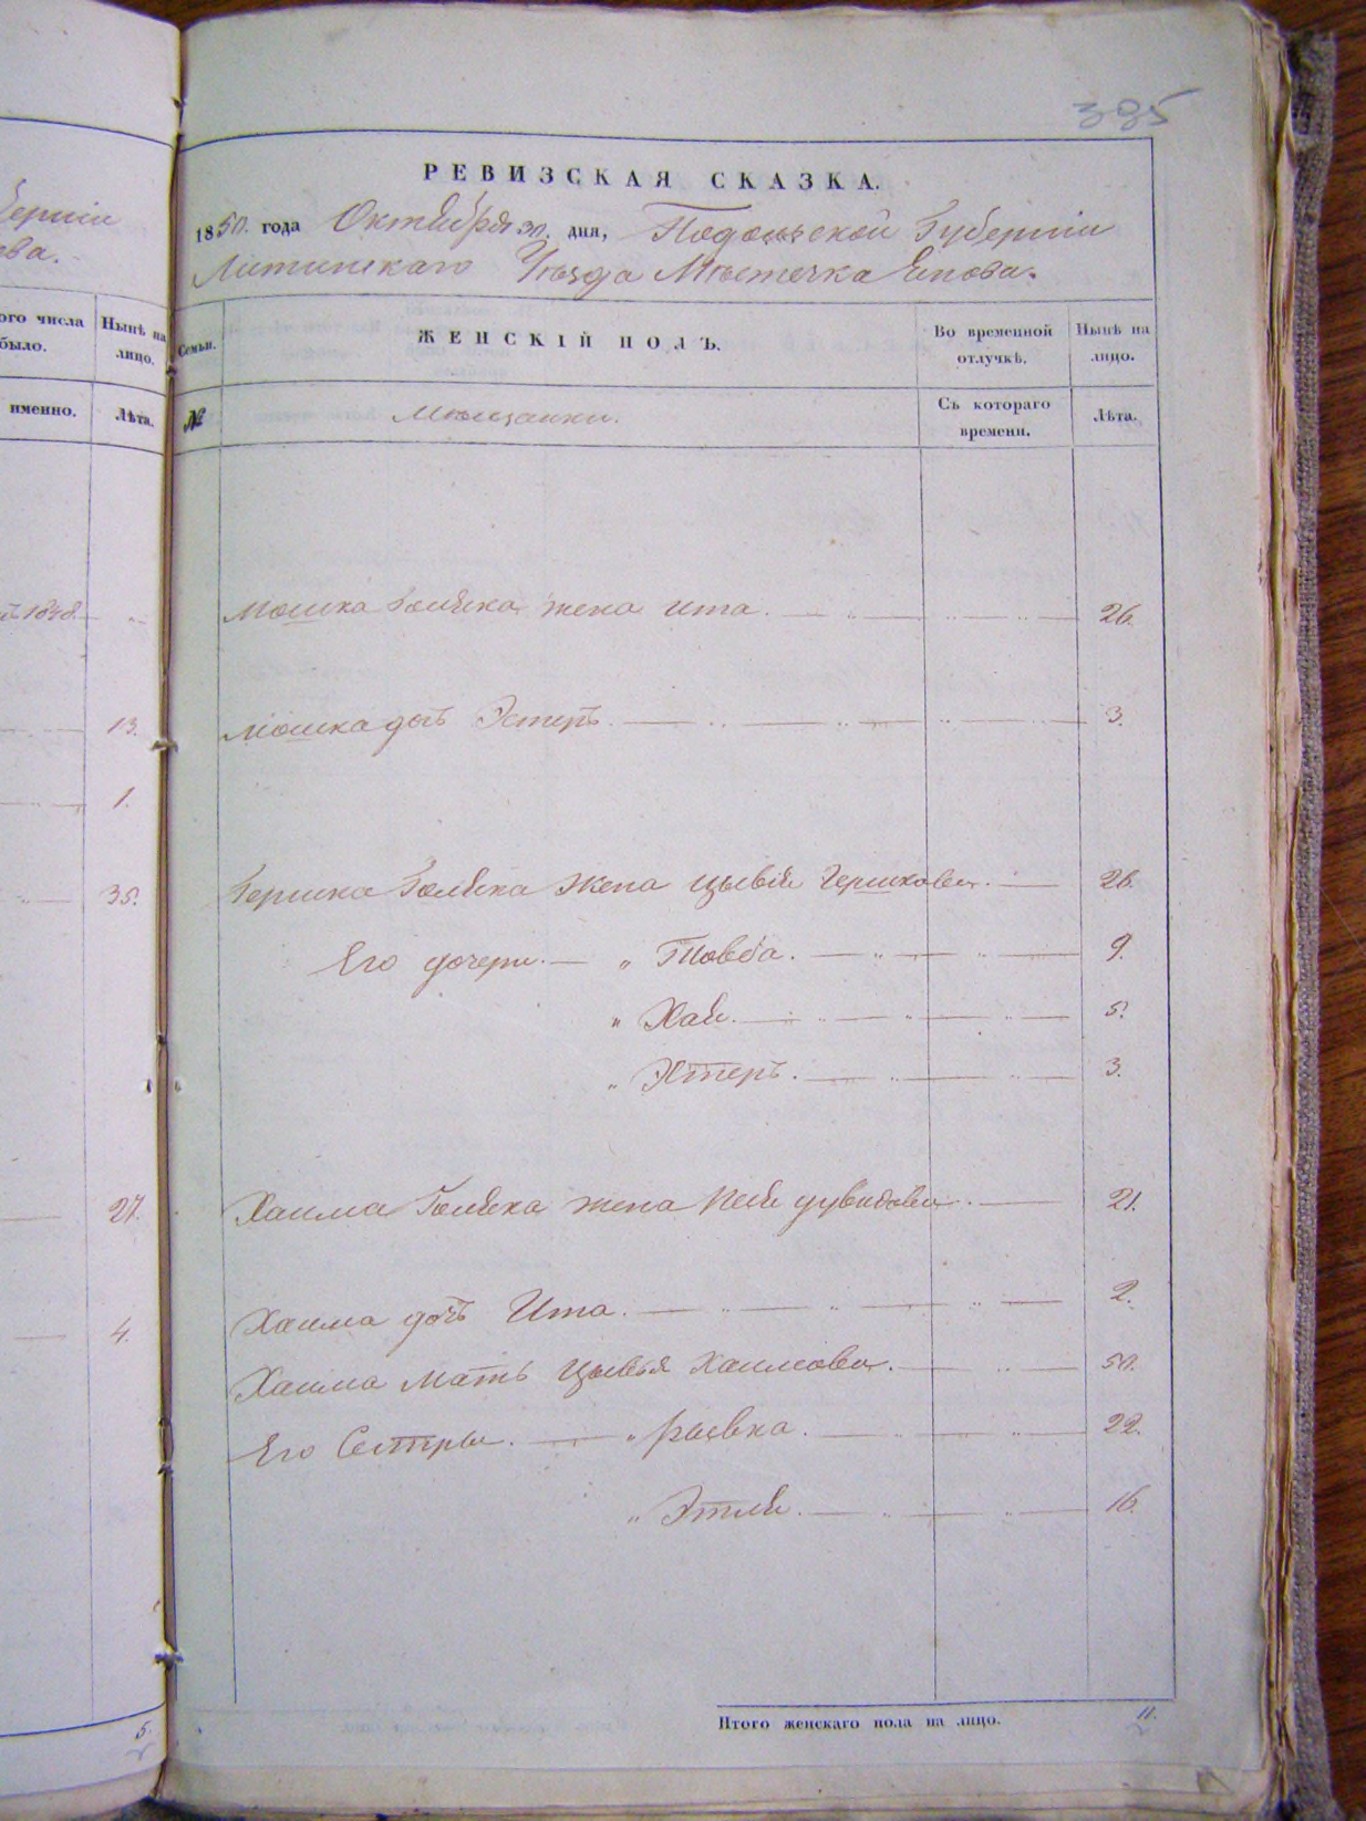 395
РЕВИЗСКАЯ СКАЗКА.
1850. года Октября 30. дня, Подольской Губерніи
Литинскаго Уѣзда Мѣстечка Янова.
Семьи.
ЖЕНСКІЙ ПОЛЪ.
Во временной отлучкѣ.
Нынѣ на лицо.
№
Мѣщанки.
Съ котораго времени.
Лѣта.
Мошка жена Ита. 26.
Мошка дочь Эстеръ. 3.
Гершка жена Цывія Гершкова. 26.
Его дочери. " Товба. 9.
" Хая. 5.
" Эстеръ. 3.
Хаима жена 21.
Хаима дочь Ита. 2.
Хаима мать Цывья Хаимова. 50.
Его Сестры. " Рывка. 22.
" Этля. 16.
Итого женскаго пола на лицо. 11.
губерніи
ова.
ого числа
было.
Нынѣ на
лицо.
именно.
Лѣта.
1848.
13.
1.
35.
27.
4.
5.